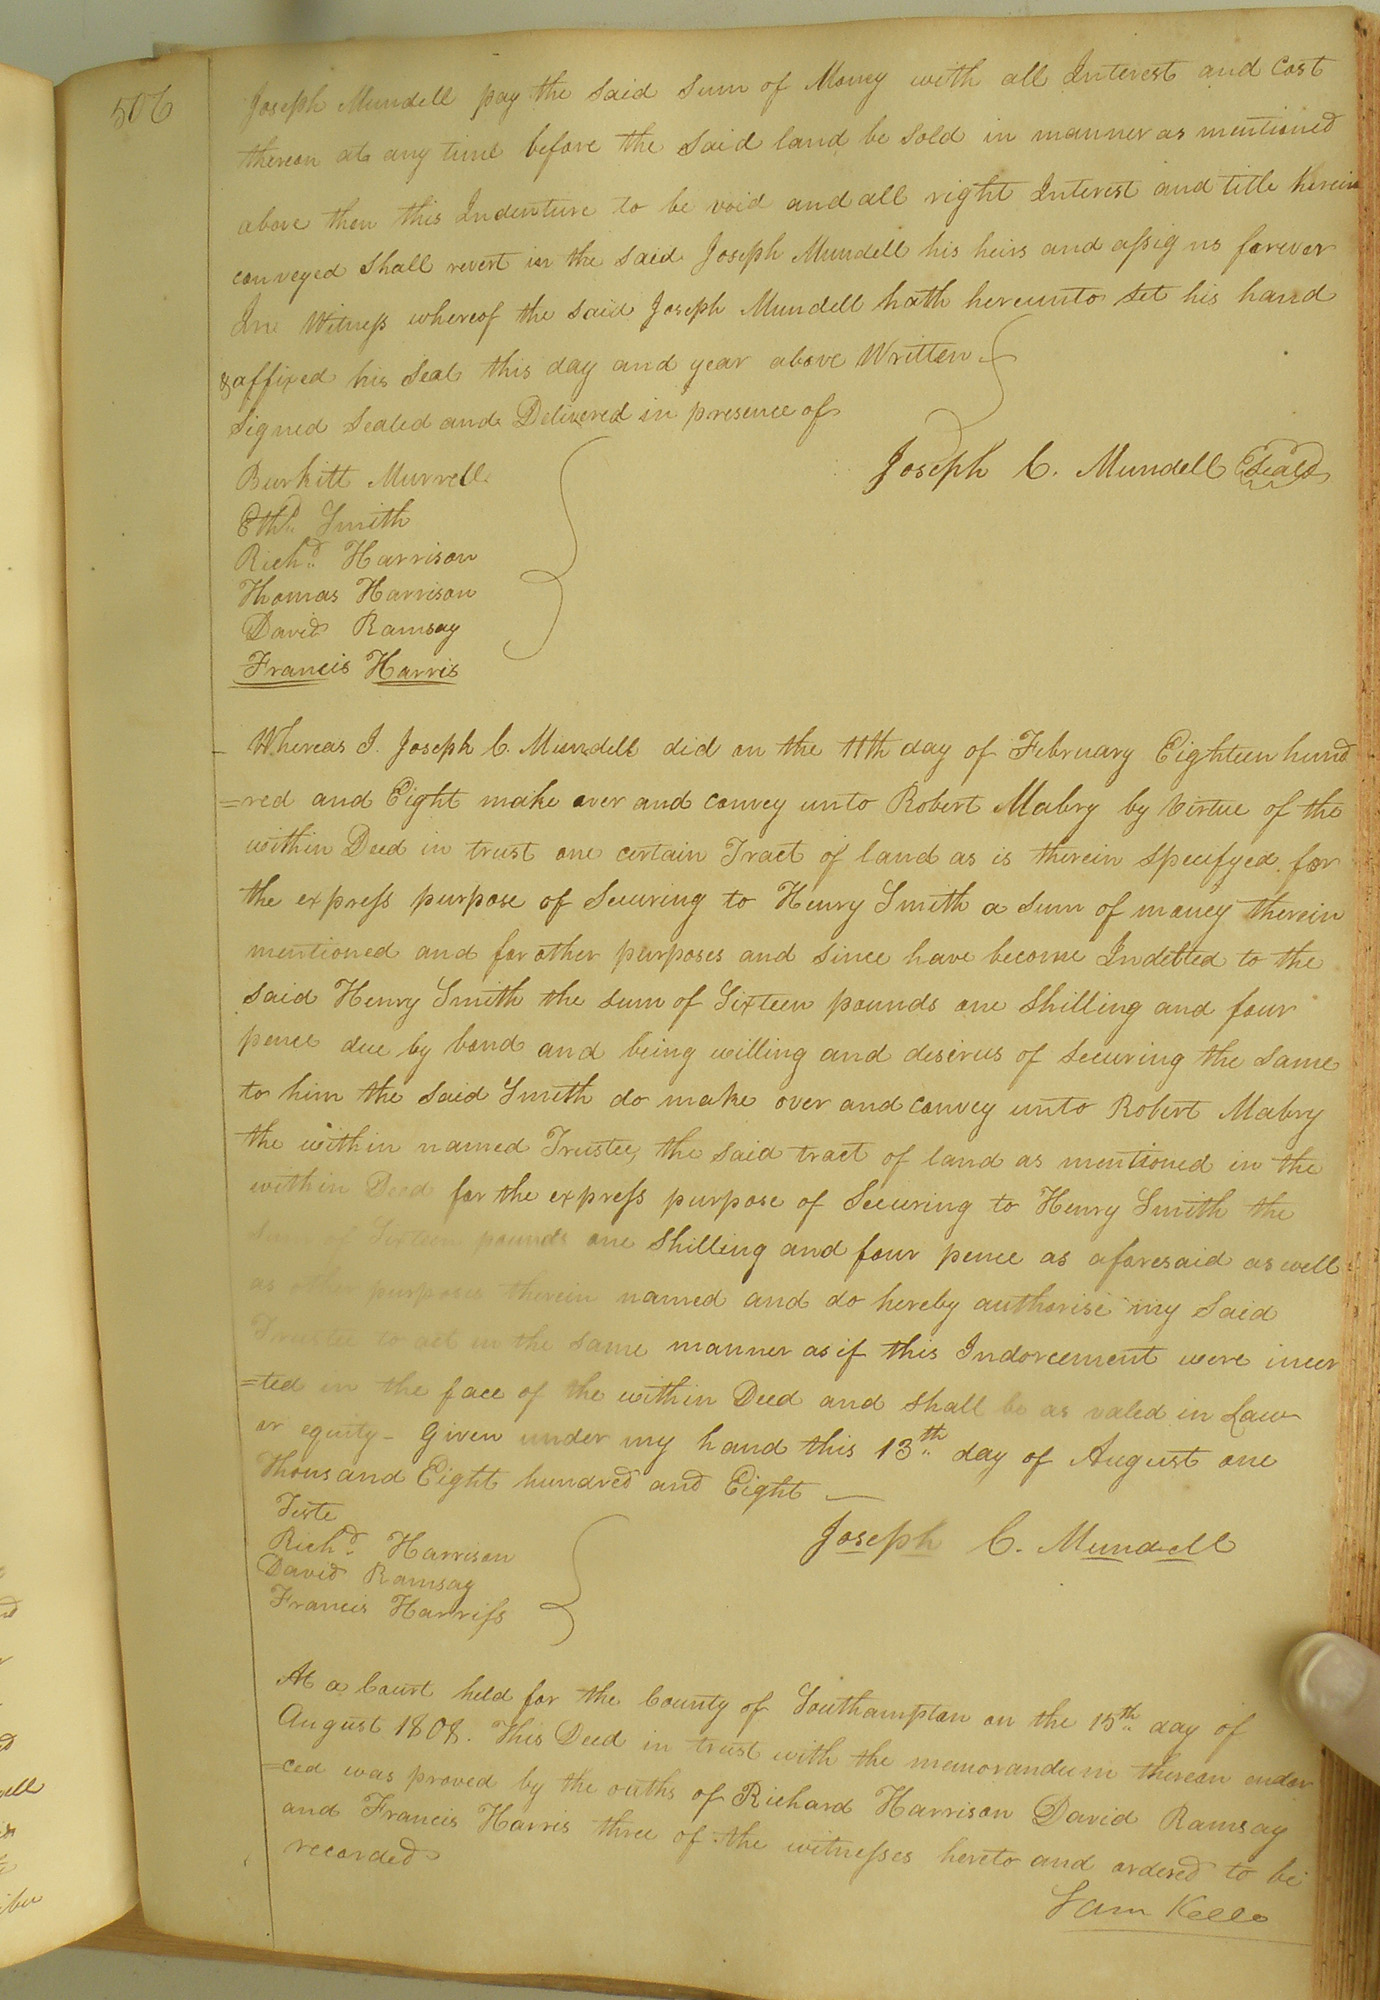 506
Joseph Mundell pay the said sum of Money with all Interest and Cost
thereon at any time before the said land be sold in manner as mentioned
above then this Indenture to be void and all right Interest and title herein
conveyed shall revert in the said Joseph Mundell his heirs and assigns forever
In Witness whereof the said Joseph Mundell hath hereunto set his hand
& affixed his seal this day and year above Written
Signed Sealed and Delivered in presence of
Joseph C. Mundell Seal
Burkitt Murrell
Ethd. Smith
Richd. Harrison
Thomas Harrison
David Ramsay
Francis Harris
Whereas I. Joseph C. Mundell did on the 11th day of February Eighteen hund
=red and Eight make over and convey unto Robert Mabry by Virtue of the
within Deed in trust one certain Tract of land as is therein specifyed for
the express purpose of Securing to Henry Smith a sum of money therein
mentioned and for other purposes and since have become Indebted to the
said Henry Smith the sum of Sixteen pounds one Shilling and four
pence due by bond and being willing and desirus of securing the same
to him the said Smith do make over and convey unto Robert Mabry
the within named Trustee, the said tract of land as mentioned in the
within Deed for the express purpose of Securing to Henry Smith the
sum of Sixteen pounds one Shilling and four pence as aforesaid as well
as other purposes therein named and do hereby authorise my said
Trustee to act in the same manner as if this Indorcement were incer
=ted in the face of the within Deed and shall be as valed in Law
or equity - Given under my hand this 13th day of August one
thousand Eight hundred and Eight
Teste
Joseph C. Mundell
Richd. Harrison
David Ramsay
Francis Harriss
At a Court held for the County of Southampton on the 15th day of
August 1808. This Deed in trust with the memorandum thereon endor
=ced was proved by the oaths of Richard Harrison David Ramsay
and Francis Harris three of the witnesses hereto and ordered to be
recorded
Sam Kello